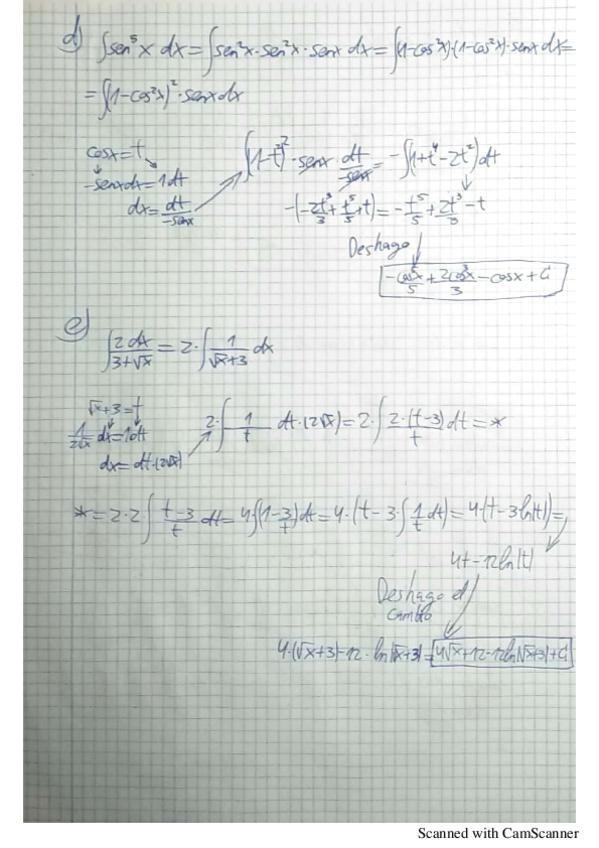 d) ∫sen⁵x dx = ∫sen²x·sen²x·senx dx = ∫(1-cos²x)·(1-cos²x)·senx dx =
= ∫(1-cos²x)²·senx dx
cosx = t
-senx dx = 1dt
dx = dt/-senx
∫(1-t²)²·senx dt/-senx = -∫(1+t⁴-2t²)dt
-(-2t³/3 + t⁵/5 + t) = -t⁵/5 + 2t³/3 - t
Deshago
-cos⁵x/5 + 2cos³x/3 - cosx + C
e)
∫2dx/(3+√x) = 2·∫1/(√x+3) dx
√x+3 = t
1/(2√x) dx = 1dt
dx = dt·(2√x)
2·∫1/t dt·(2√x) = 2·∫2·(t-3)/t dt = *
* = 2·2∫(t-3)/t dt = 4∫(1-3/t)dt = 4·(t-3·∫1/t dt) = 4·(t-3ln|t|) =
4t-12ln|t|
Deshago el
cambio
4·(√x+3)-12·ln|√x+3| = 4√x+12-12ln|√x+3|+C
Scanned with CamScanner